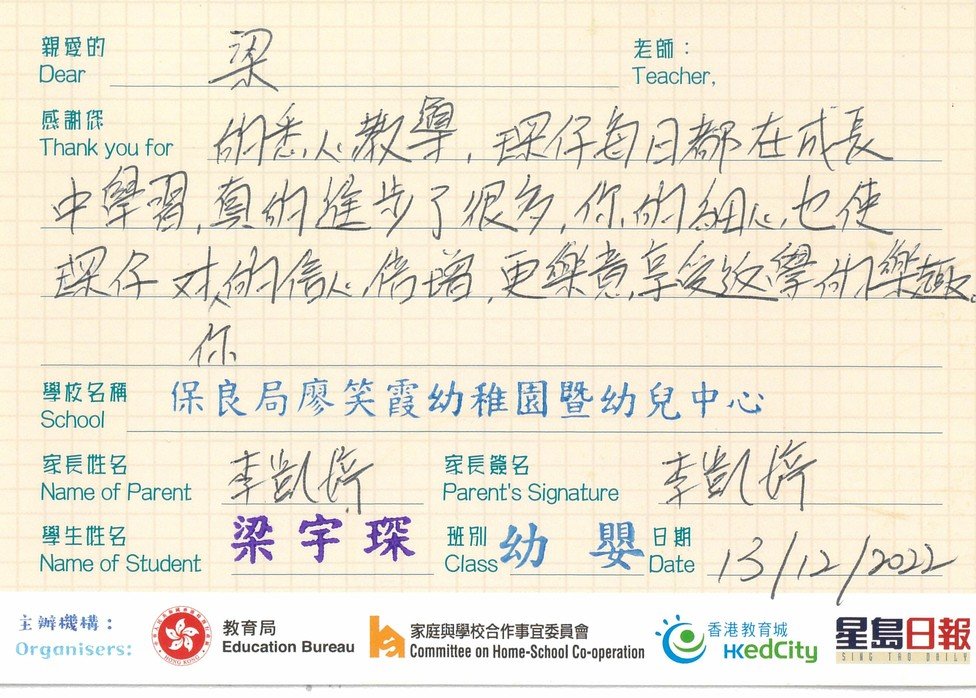 親愛的 梁 老師：
Dear Teacher,
感謝您
Thank you for 的悉心教導，琛仔每日都在成長
中學習，真的進步了很多，你的細心，也使
琛仔对你的信心倍增，更樂意享受返學的樂趣。
學校名稱 保良局廖笑霞幼稚園暨幼兒中心
School
家長姓名 李凱婷 家長簽名 李凱婷
Name of Parent Parent's Signature
學生姓名 梁宇琛 班別 幼嬰 日期
Name of Student Class Date 13/12/2022
主辦機構： 教育局 家庭與學校合作事宜委員會 香港教育城 星島日報
Organisers: Education Bureau Committee on Home-School Co-operation HKedCity SING TAO DAILY